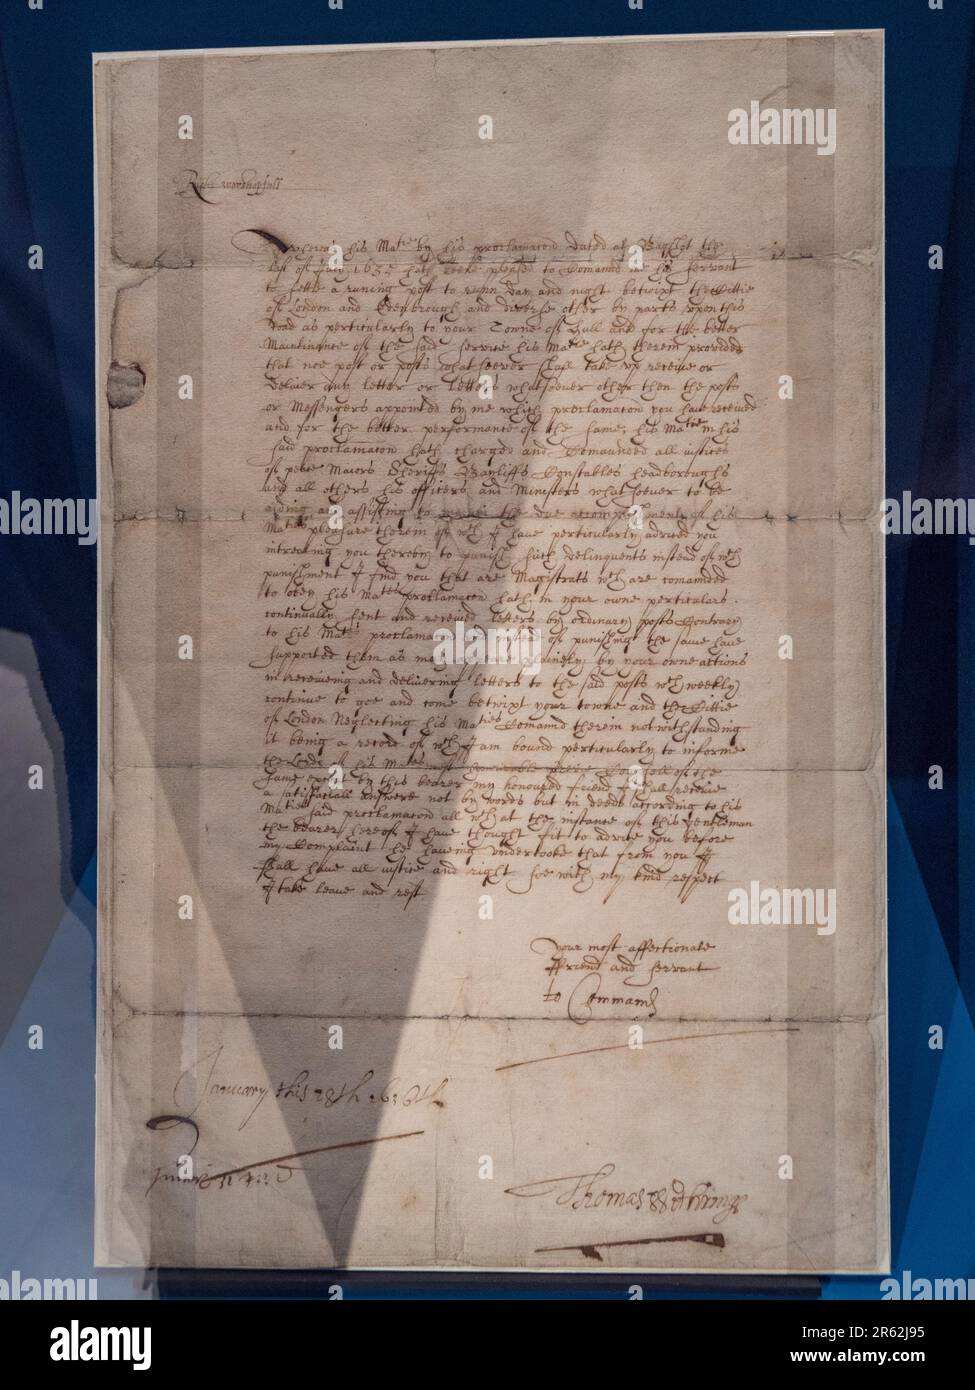 Right worshipfull
Whereas his Ma:tie by his proclamacon dated at Bagshot the
last of July 1635 hath beene pleased to Comand me his servant
to settle a runing post to runn day and night betwixt the Cittie
of London and Edenbrough and diverse other by parts upon this
Road as perticularly to your Towne of Hull and for the better
Maintinance of the said service his Matie hath therein provided
that noe post or posts whatsoever shall take up receive or
deliver any letter or letters whatsoever other then the posts
or Messengers appointed by me which proclamacon you have received
and for the better performance of the same, his Matie in his
said proclamacon hath charged and Comaunded all iustices
of peace Maiors Sheriffs Bayliffs Constables headboroughs
and all others his officers and Ministers whatsoever to be
aiding and assisting to the due accomplishment of his
Maties pleasure therein of wch I have perticularly advised you
intreating you thereby to punish such delinquents instead of wch
punishment I find you that are Magistrats wch are comanded
to obey his Maties proclamacon hath in your owne perticulars
continually sent and received letters by ordinary posts Contrary
to his Maties proclamacon and instead of punishing the same have
supported them as may appeare plainely by your owne actions
in receiveing and delivering letters to the said posts wch weekly
continue to goe and come betwixt your towne and the Cittie
of London Neglecting his Maties Comannd therein notwithstanding
it being a record of wch I am bound perticularly to informe
the Lords of his Maties most honorable privie Counsell of the
same except by this bearer my honoured friend I shall receive
a satisfactall answere not by words but in deede according to his
Maties said proclamacon all wch at the instance of this gentleman
the bearer hereof I have thought fit to advise you before
my Complaint he haveing undertooke that from you I
shall have all iustice and right soe with my kind respect
I take leave and rest
your most affectionate
ffriend and servant
to Command
January this 28th 1636th
Thomas Witherings
alamy
a
Image ID: 2R62J95
www.alamy.com